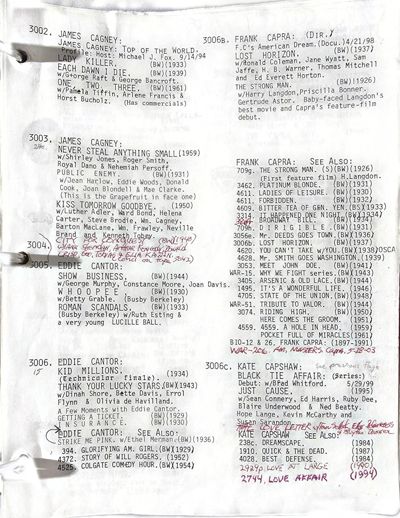 3002. JAMES CAGNEY:
JAMES CAGNEY: TOP OF THE WORLD.
Profile: Host: Michael J. Fox. 9/14/94
LADY KILLER. (BW)(1933)
EACH DAWN I DIE (BW)(1939)
w/George Raft & George Bancroft.
ONE, TWO, THREE. (BW)(1961)
w/Pamela Tiffin, Arlene Francis &
Horst Bucholz. (Has commercials)
3003. JAMES CAGNEY:
NEVER STEAL ANYTHING SMALL(1959)
w/Shirley Jones, Roger Smith,
Royal Dano & Nehemiah Persoff
PUBLIC ENEMY. (BW)(1931)
w/Jean Harlow, Eddie Woods, Donald
Cook, Joan Blondell & Mae Clarke.
(This is the Grapefruit in face one)
KISS TOMORROW GOODBYE. (1950)
w/Luther Adler, Ward Bond, Helena
Carter, Steve Brodie, Wm. Cagney,
Barton MacLane, Wm. Frawley, Neville
Brand and Kenneth Tobey
3004. CITY FOR CONQUEST (BW)(1940)
3005. EDDIE CANTOR:
SHOW BUSINESS. (BW)(1944)
w/George Murphy, Constance Moore, Joan Davis
WHOOPEE. (BW)(1930)
w/Betty Grable. (Busby Berkeley)
ROMAN SCANDALS. (BW)(1933)
(Busby Berkeley) w/Ruth Esting &
a very young LUCILLE BALL.
3006. EDDIE CANTOR:
15 KID MILLIONS. (1934)
(Technicolor finale).
THANK YOUR LUCKY STARS.(BW)(1943)
w/Dinah Shore, Bette Davis, Errol
Flynn & Olivia de Havilland.
A Few Moments with Eddie Cantor.
GETTING A TICKET. (BW)(1929)
INSURANCE. (BW)(1930)
EDDIE CANTOR: SEE ALSO:
STRIKE ME PINK. w/Ethel Merman.(BW)(1936)
394. GLORIFYING AM. GIRL(BW)(1929)
4372. STORY OF WILL ROGERS. (1952)
4525. COLGATE COMEDY HOUR.(BW)(1954)
3006b. FRANK CAPRA: (DIR.)
F.C's American Dream.(Docu.)4/21/98
LOST HORIZON. (BW)(1937)
w/Ronald Coleman, Jane Wyatt, Sam
Jaffe, H. B. Warner, Thomas Mitchell
and Ed Everett Horton.
THE STRONG MAN. (BW)(1926)
w/Harry Langdon,Priscilla Bonner,
Gertrude Astor. Baby-faced Langdon's
best movie and Capra's feature-film
debut.
FRANK CAPRA: SEE ALSO:
709g. THE STRONG MAN. (S)(BW)(1926)
(First feature film) H.Langdon.
3462. PLATINUM BLONDE. (BW)(1931)
4611. LADIES OF LEISURE. (BW)(1930)
4611. FORBIDDEN. (BW)(1932)
4609. BITTER TEA OF GEN. YEN.(BS)(1933)
3314. IT HAPPENED ONE NIGHT.(BW)(1934)
BROADWAY BILL. (BW)(1934)
709h. DIRIGIBLE. (BW)(1931)
3056e. MR. DEEDS GOES TOWN.(BW)(1936)
3006b. LOST HORIZON. (BW)(1937)
4620. YOU CAN'T TAKE w/YOU.(BW)(1938)OSCA
4628. MR. SMITH GOES WASHINGTON.(1939)
3053. MEET JOHN DOE. (BW)(1941)
WAR-15. WHY WE FIGHT series.(BW)(1943)
3405. ARSENIC & OLD LACE.(BW)(1944)
1495. IT'S A WONDERFUL LIFE. (1946)
4705. STATE OF THE UNION.(BW)(1948)
WAR-51. TRIBUTE TO VALOR. (BW)(1944)
3074. RIDING HIGH. (BW)(1950)
HERE COMES THE GROOM. (1951)
4559. 4559. A HOLE IN HEAD. (1959)
POCKET FULL OF MIRACLES(1961)
BIO-12 & 26, FRANK CAPRA: (1897-1991)
WAR-206. AM. MASTERS Capra. 5-28-03
3006c. KATE CAPSHAW: see previous page
BLACK TIE AFFAIR: (Series:)
Debut: w/Brad Whitford. 5/29/99
JUST CAUSE. (1995)
w/Sean Connery, Ed Harris, Ruby Dee,
Blaire Underwood & Ned Beatty.
Hope Lange, Kevin McCarthy and
Susan Sarandon.
THE LOVE LETTER
KATE CAPSHAW SEE ALSO:
238c. DREAMSCAPE. (1984)
1910. QUICK & THE DEAD. (1987)
4028. BEST DEFENSE. (1984)
2924p. LOVE AT LARGE (1990)
2744. LOVE AFFAIR (1994)